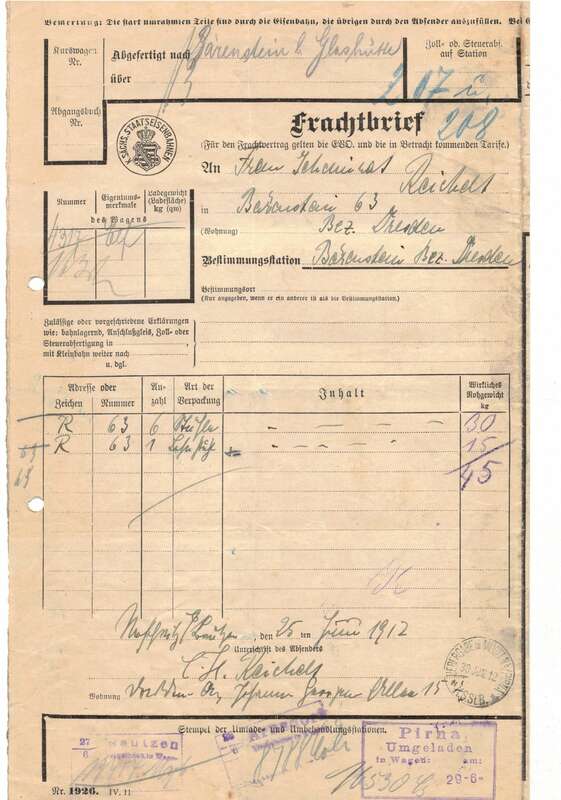 Bemerkung: Die stark umrahmten Teile sind durch die Eisenbahn, die übrigen durch den Absender auszufüllen.
Kurswagen Nr.
Abgefertigt nach Bärenstein b Glashütte
über
Zoll- od. Steuerabf. auf Station
Abgangsbuch Nr.
207 u.
208
K. SÄCHS. STAATSEISENBAHNEN
Frachtbrief
(Für den Frachtvertrag gelten die EVO. und die in Betracht kommenden Tarife.)
An Frau
Reichelt
in Bärenstein 63
(Wohnung) Bez. Dresden
Nummer
Eigentumsmerkmale
Ladegewicht (Ladefläche) kg (qm)
des Wagens
Bestimmungsstation Bärenstein Bez. Dresden
Bestimmungsort
(Nur angegeben, wenn er ein anderer ist als die Bestimmungsstation.)
Zulässige oder vorgeschriebene Erklärungen
wie: bahnlagernd, Anschlußgleis, Zoll- oder
Steuerabfertigung in
mit Kleinbahn weiter nach
u. dgl.
Adresse oder
Zeichen Nummer
Anzahl
Art der Verpackung
Inhalt
Wirkliches Rohgewicht kg
R 63 6 Stühle 30
R 63 1 15
45
, den 25 ten Juni 1912
Unterschrift des Absenders
C. H. Reichelt
Wohnung Dresden
Stempel der Umlade- und Umbehandlungsstationen.
27/6 Bautzen
Pirna
Umgeladen
in Wagen: am:
29-6-
Nr. 1926. IV. 11